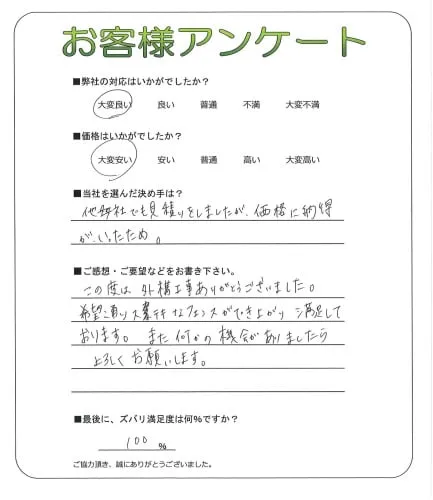 お客様アンケート
■弊社の対応はいかがでしたか?
大変良い 良い 普通 不満 大変不満
■価格はいかがでしたか?
大変安い 安い 普通 高い 大変高い
■当社を選んだ決め手は?
他弊社でも見積りをしましたが、価格に納得
が、いったため。
■ご感想・ご要望などをお書き下さい。
この度は外構工事ありがとうございました。
希望通り大業テキなフェンスができ上がり 満足して
おります。また何かの機会がありましたら
よろしくお願いします。
■最後に、ズバリ満足度は何%ですか?
100 %
ご協力頂き、誠にありがとうございました。